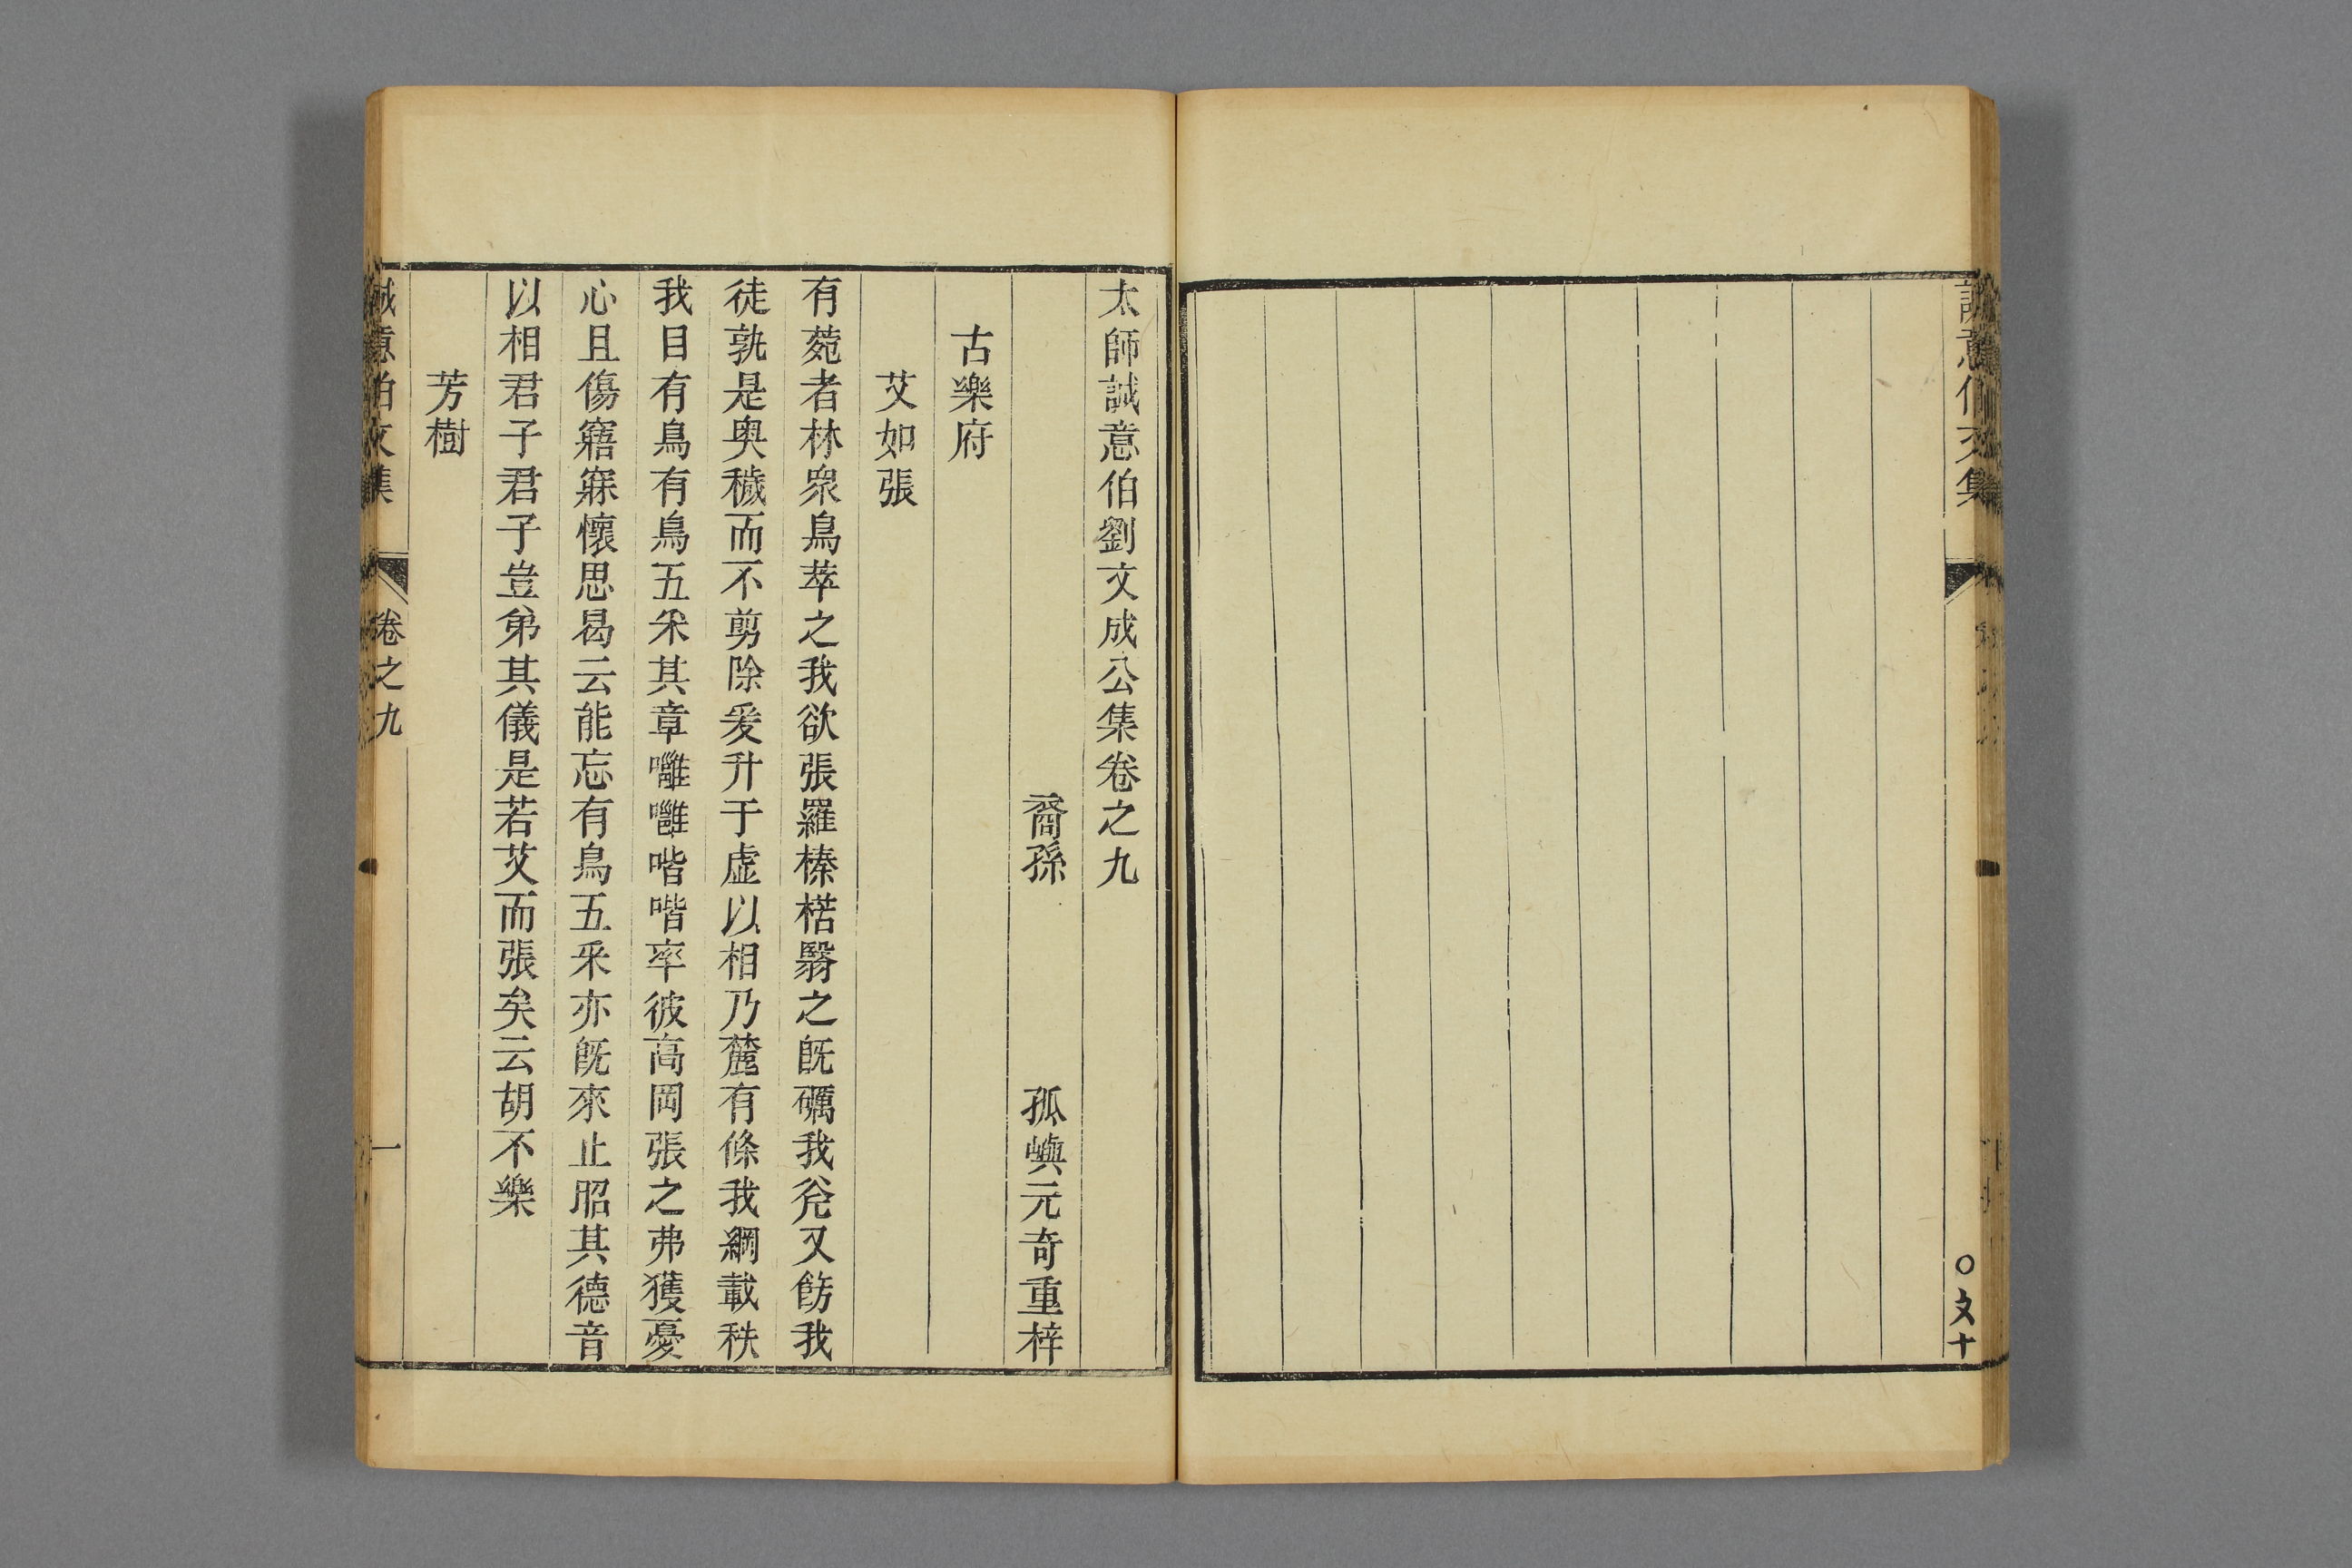 誠意伯文集
○文十
太師誠意伯劉文成公集卷之九
裔孫 孤嶼元奇重梓
古樂府
艾如張
有菀者林衆鳥萃之我欲張羅榛楛翳之旣礪我斧又飭我
徒孰是奥穢而不剪除爰升于虛以相乃麓有條我綱載秩
我目有鳥有鳥五采其章嘒嘒喈喈率彼高岡張之弗獲憂
心且傷寤寐懷思曷云能忘有鳥五采亦旣來止昭其德音
以相君子君子豈弟其儀是若艾而張矣云胡不樂
芳樹
誠意伯文集 卷之九 一